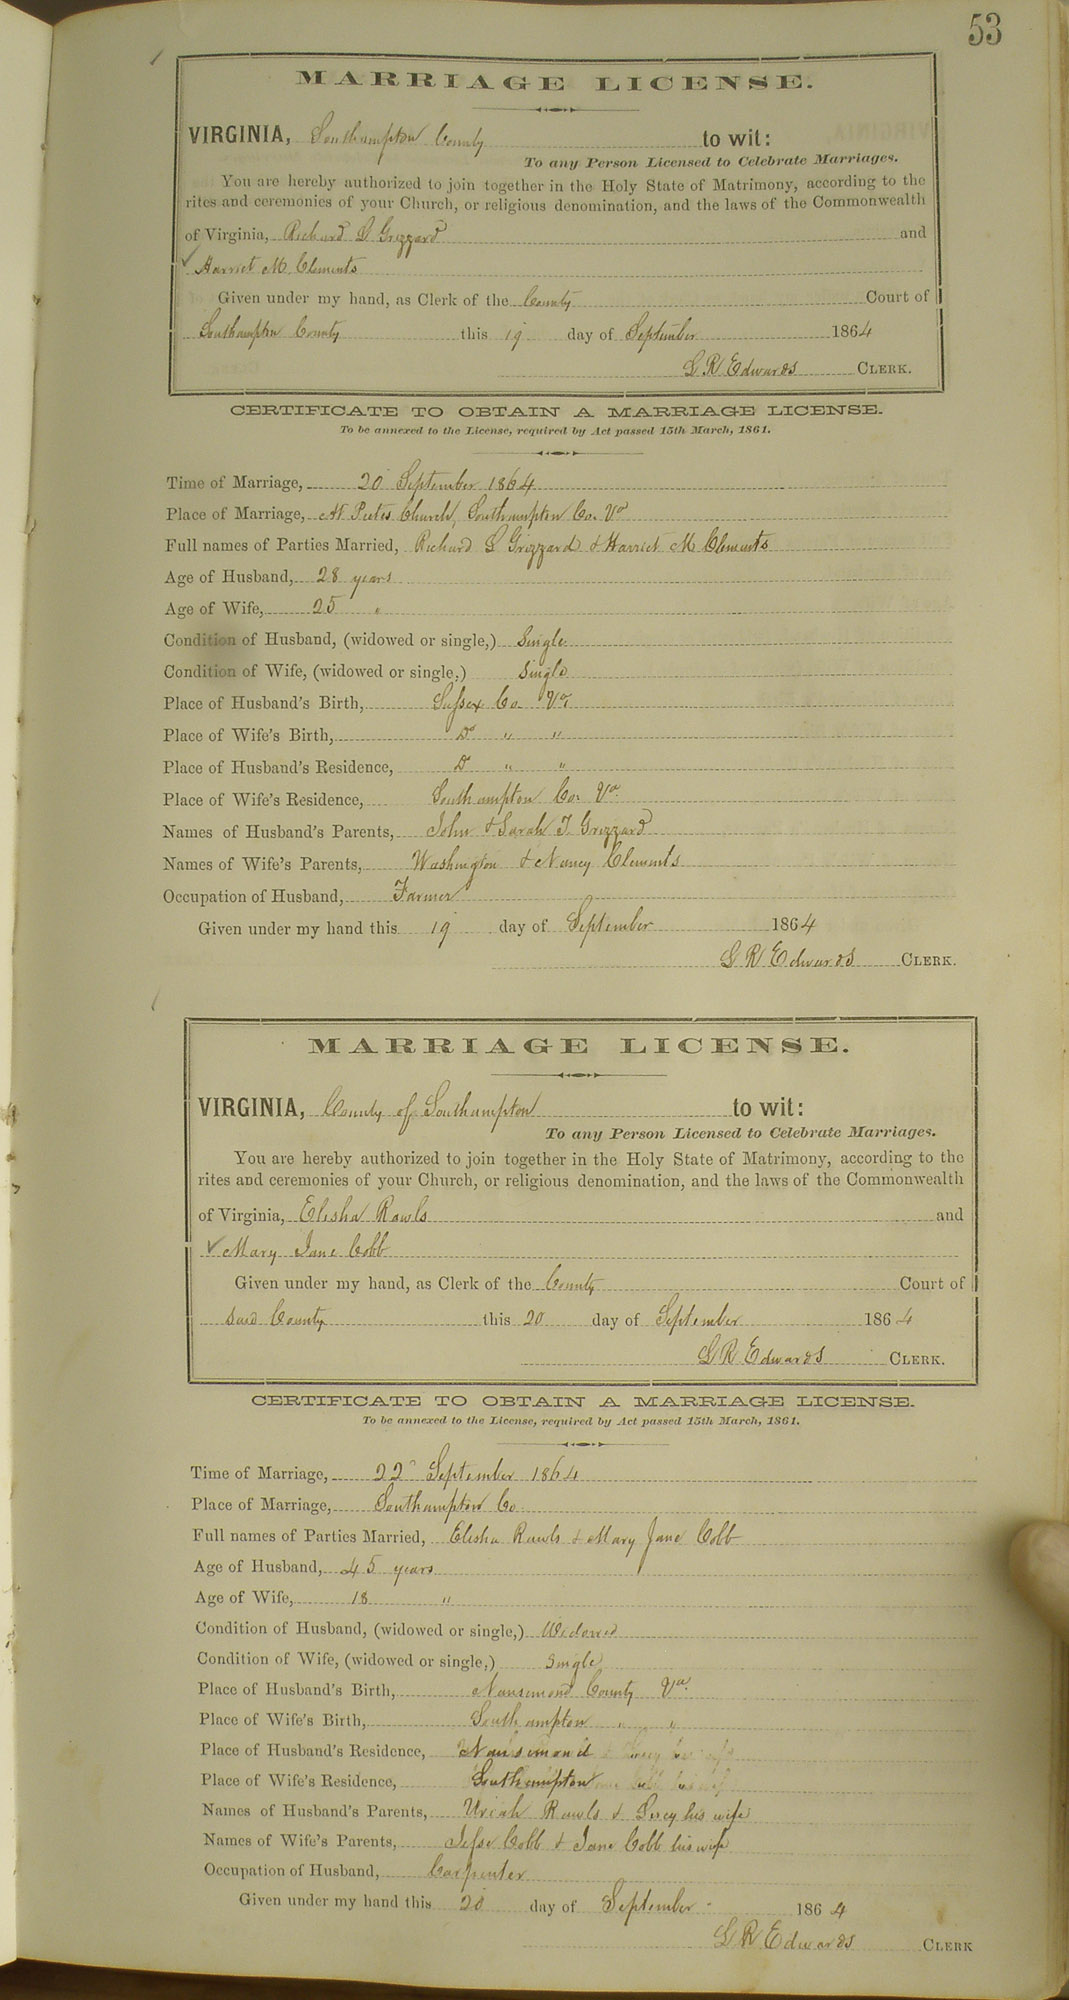 53
MARRIAGE LICENSE.
VIRGINIA, Southampton County to wit:
To any Person Licensed to Celebrate Marriages.
You are hereby authorized to join together in the Holy State of Matrimony, according to the
rites and ceremonies of your Church, or religious denomination, and the laws of the Commonwealth
of Virginia, Richard L Grizzard and
Harriet M. Clements
Given under my hand, as Clerk of the County Court of
Southampton County this 19 day of September 1864
L R Edwards CLERK.
CERTIFICATE TO OBTAIN A MARRIAGE LICENSE.
To be annexed to the License, required by Act passed 15th March, 1861.
Time of Marriage, 20 September 1864
Place of Marriage, At Church, Southampton Co. Va
Full names of Parties Married, Richard L Grizzard & Harriet M. Clements
Age of Husband, 28 years
Age of Wife, 25 "
Condition of Husband, (widowed or single,) Single
Condition of Wife, (widowed or single,) Single
Place of Husband's Birth, Sussex Co. Va
Place of Wife's Birth, Do " "
Place of Husband's Residence, Do " "
Place of Wife's Residence, Southampton Co. Va
Names of Husband's Parents, John & Sarah T. Grizzard
Names of Wife's Parents, Washington & Nancy Clements
Occupation of Husband, Farmer
Given under my hand this 19 day of September 1864
L R Edwards CLERK.
MARRIAGE LICENSE.
VIRGINIA, County of Southampton to wit:
To any Person Licensed to Celebrate Marriages.
You are hereby authorized to join together in the Holy State of Matrimony, according to the
rites and ceremonies of your Church, or religious denomination, and the laws of the Commonwealth
of Virginia, Elisha Rawls and
Mary Jane Cobb
Given under my hand, as Clerk of the County Court of
said County this 20 day of September 1864
L R Edwards CLERK.
CERTIFICATE TO OBTAIN A MARRIAGE LICENSE.
To be annexed to the License, required by Act passed 15th March, 1861.
Time of Marriage, 22 September 1864
Place of Marriage, Southampton Co.
Full names of Parties Married, Elisha Rawls & Mary Jane Cobb
Age of Husband, 45 years
Age of Wife, 18 "
Condition of Husband, (widowed or single,) Widowed
Condition of Wife, (widowed or single,) Single
Place of Husband's Birth, Nansemond County Va.
Place of Wife's Birth, Southampton " "
Place of Husband's Residence, Nansemond
Place of Wife's Residence, Southampton
Names of Husband's Parents, Uriah Rawls & his wife
Names of Wife's Parents, Jesse Cobb & Jane Cobb his wife
Occupation of Husband, Carpenter
Given under my hand this 20 day of September 1864
L R Edwards CLERK